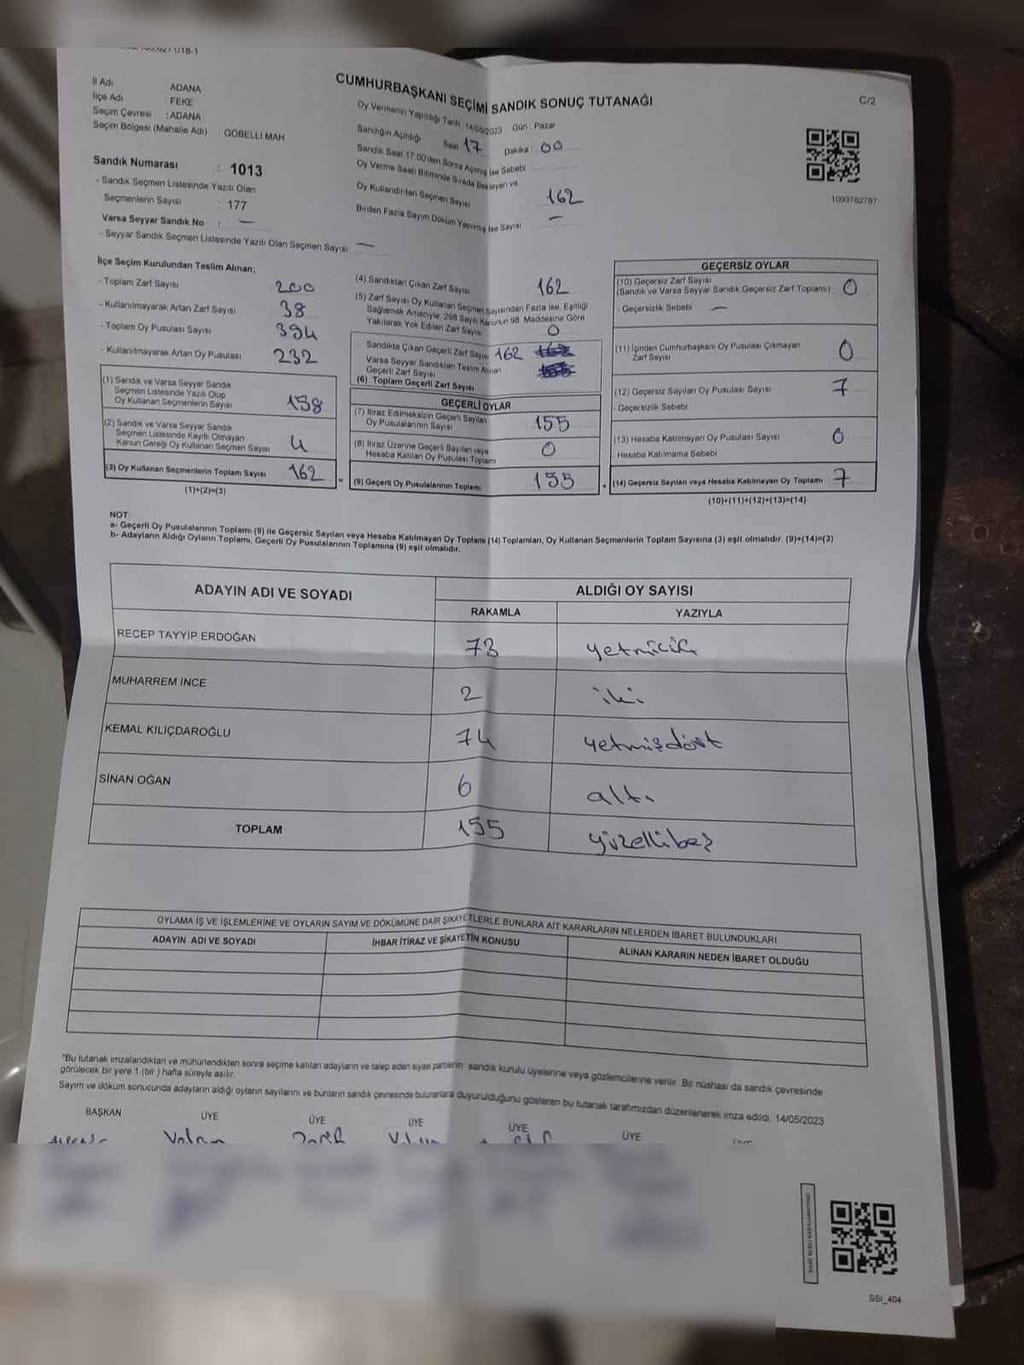 CUMHURBAŞKANI SEÇİMİ SANDIK SONUÇ TUTANAĞI
C/2
İl Adı ADANA
İlçe Adı FEKE
Seçim Çevresi : ADANA
Seçim Bölgesi (Mahalle Adı) GÖBELLİ MAH
Sandık Numarası : 1013
- Sandık Seçmen Listesinde Yazılı Olan
Seçmenlerin Sayısı : 177
Varsa Seyyar Sandık No : —
- Seyyar Sandık Seçmen Listesinde Yazılı Olan Seçmen Sayısı —
Oy Vermenin Yapıldığı Tarih : 14/05/2023 Gün : Pazar
Sandığın Açıldığı Saat 17 Dakika : 00
Sandık Saat 17:00'den Sonra Açılmış İse Sebebi
Oy Verme Saati Bitiminde Sırada Bekleyen ve
Oy Kullandırılan Seçmen Sayısı 162
Birden Fazla Sayım Döküm Yapılmış İse Sayısı —
1093762787
İlçe Seçim Kurulundan Teslim Alınan;
- Toplam Zarf Sayısı 200
- Kullanılmayarak Artan Zarf Sayısı 38
- Toplam Oy Pusulası Sayısı 394
- Kullanılmayarak Artan Oy Pusulası 232
(1) Sandık ve Varsa Seyyar Sandık
Seçmen Listesinde Yazılı Olup
Oy Kullanan Seçmenlerin Sayısı 158
(2) Sandık ve Varsa Seyyar Sandık
Seçmen Listesinde Kayıtlı Olmayan
Kanun Gereği Oy Kullanan Seçmen Sayısı 4
(3) Oy Kullanan Seçmenlerin Toplam Sayısı 162
(1)+(2)=(3)
(4) Sandıktan Çıkan Zarf Sayısı 162
(5) Zarf Sayısı Oy Kullanan Seçmen Sayısından Fazla İse, Eşitliği
Sağlamak Amacıyla, 298 Sayılı Kanunun 98. Maddesine Göre
Yakılarak Yok Edilen Zarf Sayısı 0
Sandıkta Çıkan Geçerli Zarf Sayısı 162
Varsa Seyyar Sandıktan Teslim Alınan
Geçerli Zarf Sayısı
(6) Toplam Geçerli Zarf Sayısı
GEÇERLİ OYLAR
(7) İtiraz Edilmeksizin Geçerli Sayılan
Oy Pusulalarının Sayısı 155
(8) İtiraz Üzerine Geçerli Sayılan veya
Hesaba Katılan Oy Pusulası Toplamı 0
(9) Geçerli Oy Pusulalarının Toplamı 155
GEÇERSİZ OYLAR
(10) Geçersiz Zarf Sayısı
(Sandık ve Varsa Seyyar Sandık Geçersiz Zarf Toplamı) 0
- Geçersizlik Sebebi —
(11) İçinden Cumhurbaşkanı Oy Pusulası Çıkmayan
Zarf Sayısı 0
(12) Geçersiz Sayılan Oy Pusulası Sayısı 7
- Geçersizlik Sebebi
(13) Hesaba Katılmayan Oy Pusulası Sayısı 0
- Hesaba Katılmama Sebebi
(14) Geçersiz Sayılan veya Hesaba Katılmayan Oy Toplamı 7
(10)+(11)+(12)+(13)=(14)
NOT:
a- Geçerli Oy Pusulalarının Toplamı (9) ile Geçersiz Sayılan veya Hesaba Katılmayan Oy Toplamı (14) Toplamları, Oy Kullanan Seçmenlerin Toplam Sayısına (3) eşit olmalıdır. (9)+(14)=(3)
b- Adayların Aldığı Oyların Toplamı, Geçerli Oy Pusulalarının Toplamına (9) eşit olmalıdır.
ADAYIN ADI VE SOYADI ALDIĞI OY SAYISI
RAKAMLA YAZIYLA
RECEP TAYYİP ERDOĞAN 73
MUHARREM İNCE 2 iki
KEMAL KILIÇDAROĞLU 74 yetmişdört
SİNAN OĞAN 6 altı
TOPLAM 155 yüzellibeş
OYLAMA İŞ VE İŞLEMLERİNE VE OYLARIN SAYIM VE DÖKÜMÜNE DAİR ŞİKAYETLERLE BUNLARA AİT KARARLARIN NELERDEN İBARET BULUNDUKLARI
ADAYIN ADI VE SOYADI İHBAR İTİRAZ VE ŞİKAYETİN KONUSU ALINAN KARARIN NEDEN İBARET OLDUĞU
*Bu tutanak imzalandıktan ve mühürlendikten sonra seçime katılan adayların ve talep eden siyasi partilerin sandık kurulu üyelerine veya gözlemcilerine verilir. Bir nüshası da sandık çevresinde
görülecek bir yere 1 (bir) hafta süreyle asılır.
Sayım ve döküm sonucunda adayların aldığı oyların sayılarını ve bunların sandık çevresinde bulunanlara duyurulduğunu gösteren bu tutanak tarafımızdan düzenlenerek imza edildi. 14/05/2023
BAŞKAN ÜYE ÜYE ÜYE ÜYE ÜYE
SSI_404